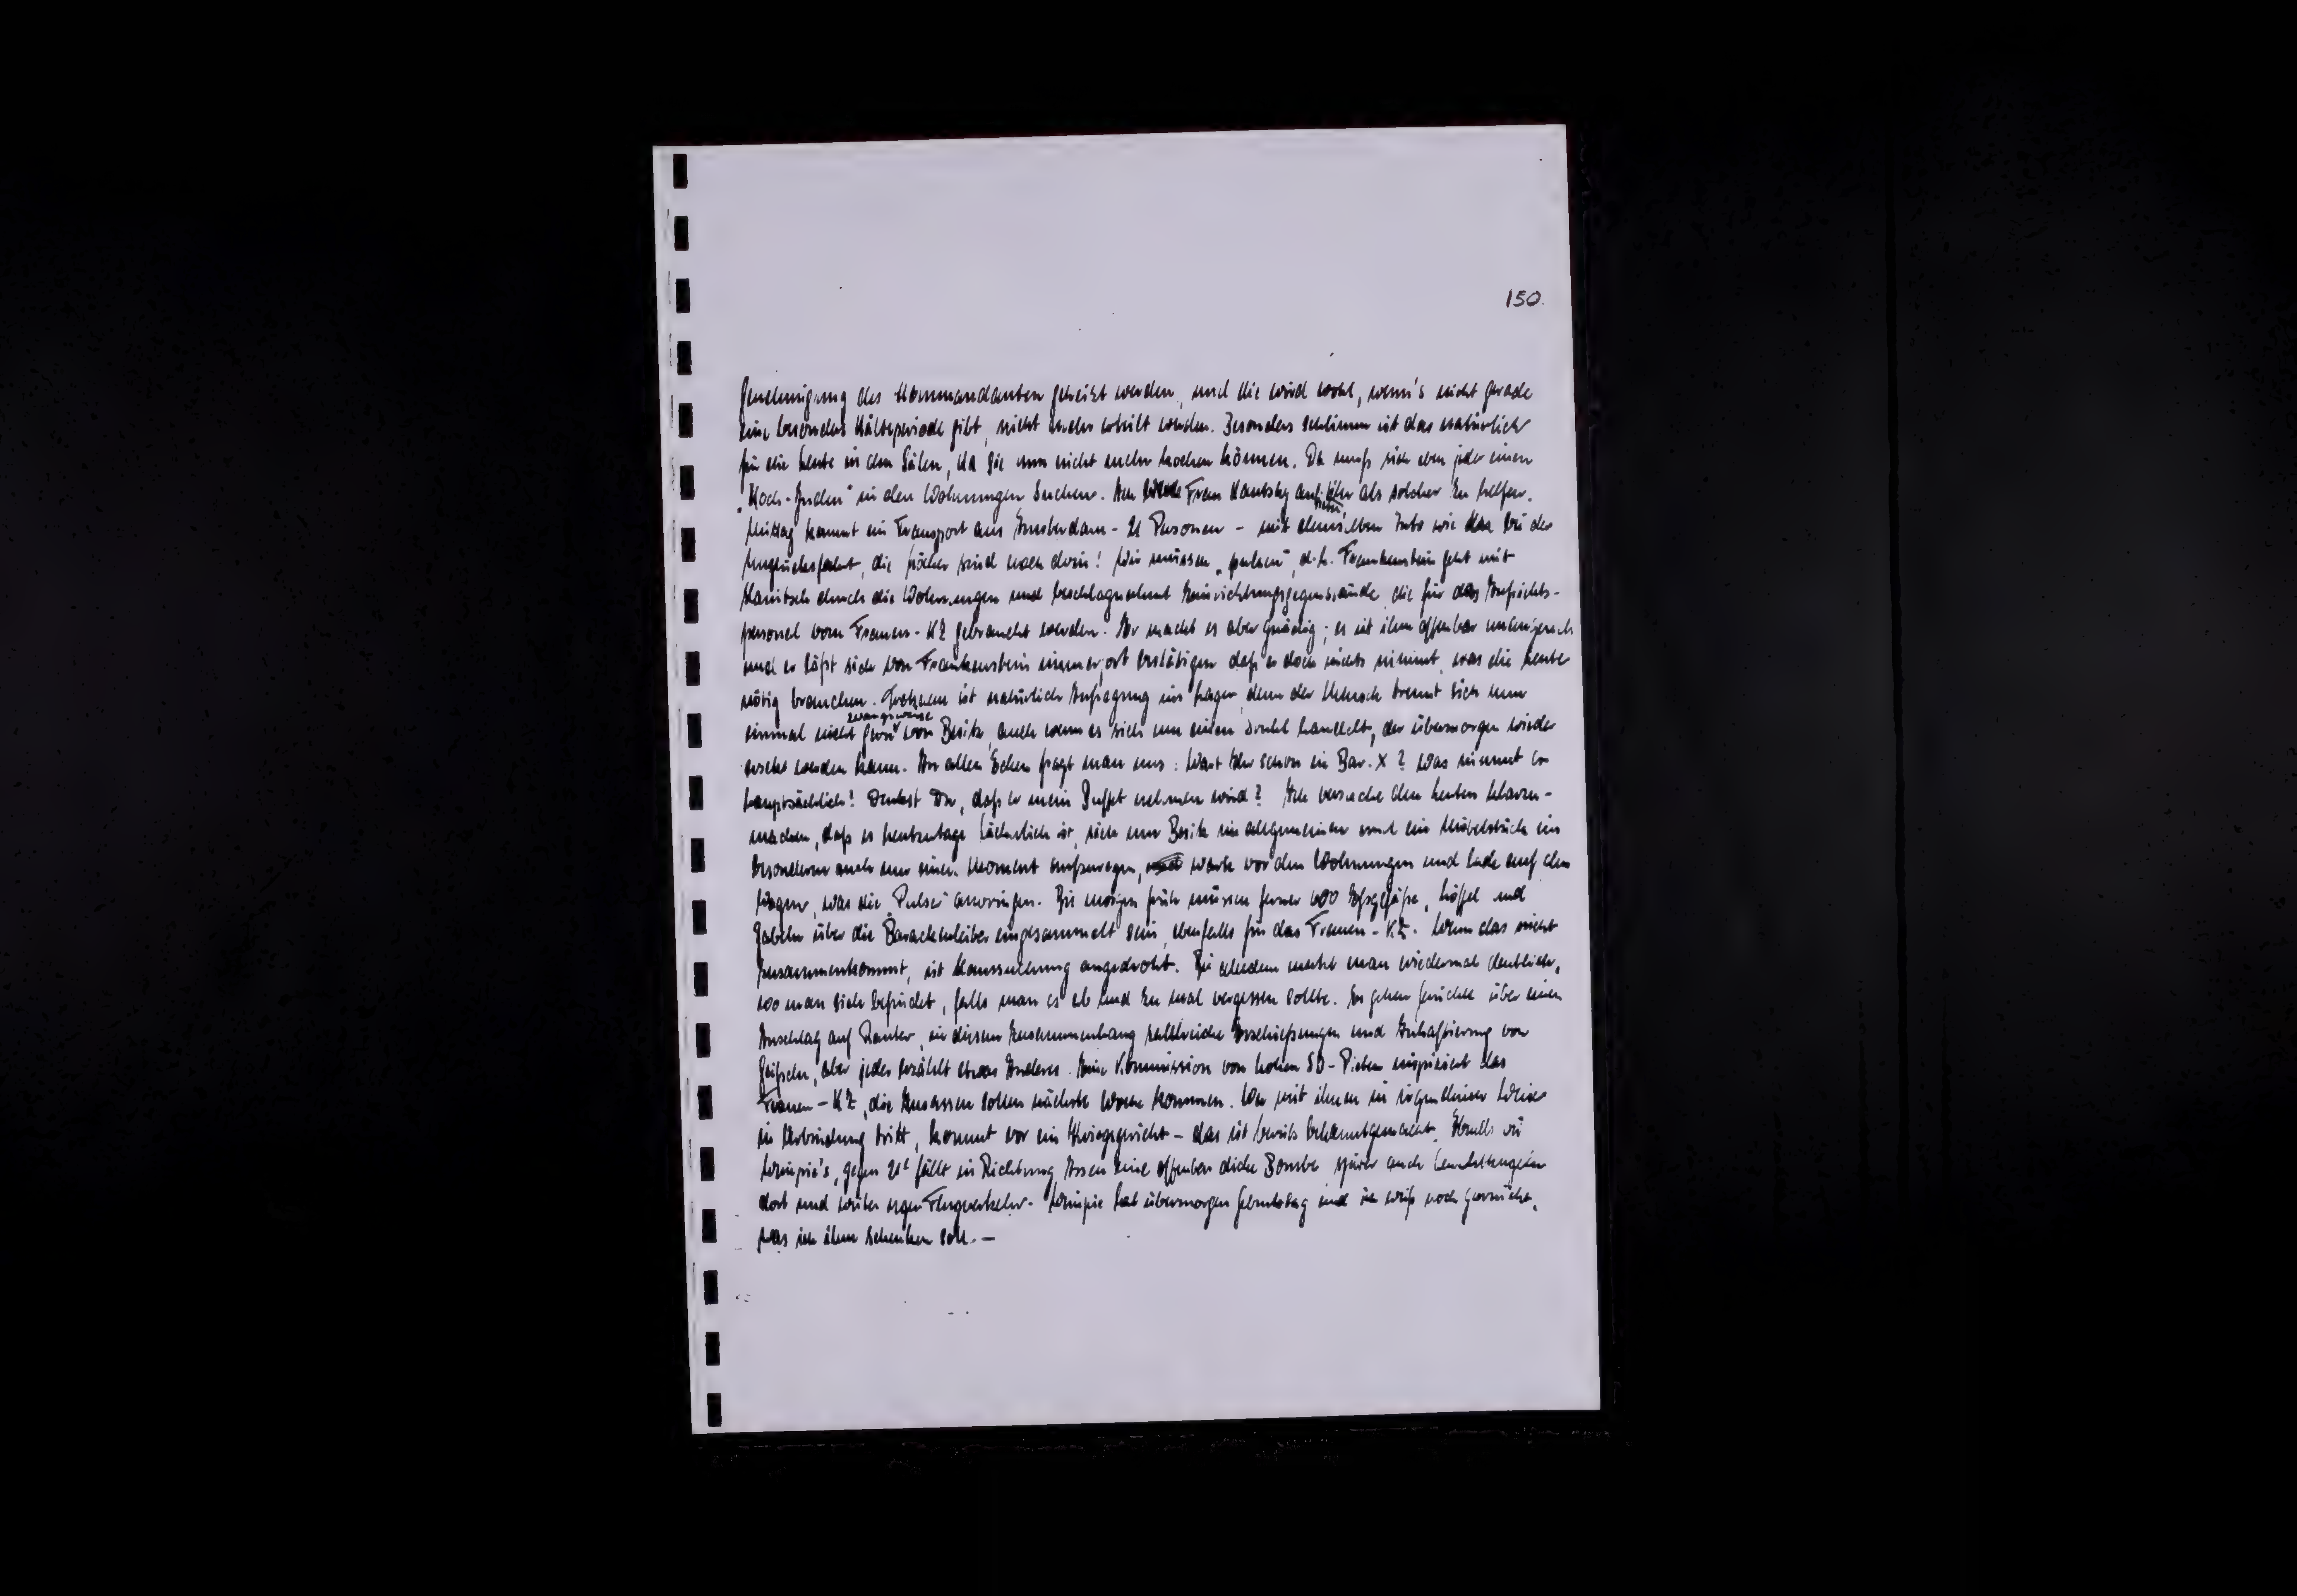 150.
Genehmigung des Kommandanten geheizt werden, und die wird wohl, wenn's nicht gerade
eine besondere Kälteperiode gibt, nicht mehr erteilt werden. Besonders schlimm ist das natürlich
für die Leute in den Sälen, da sie nun nicht mehr kochen können. Da muß sich eben jeder einen
„Koch-Juden" in den Wohnungen suchen. Frau als solcher zu helfen.
Mittag kommt ein Transport aus Amsterdam - 21 Personen - mit demselben Auto wie bei der
Unglücksfahrt, die Löcher sind noch drin! Wir müssen „pulsen", d.h. Frankenstein geht mit
durch die Wohnungen und beschlagnahmt Einrichtungsgegenstände, die für das Aufsichts-
personal vom Frauen-KZ gebraucht werden. Er macht es aber gnädig; es ist ihm offenbar unangenehm
und er läßt sich von Frankenstein immerfort bestätigen daß er doch nichts nimmt, was die Leute
nötig brauchen. Trotzdem ist natürlich Aufregung im Lager, denn der Mensch trennt sich nun
zwangsweise
einmal nicht gern von Besitz, auch wenn es sich um einen handelt, der übermorgen wieder
werden kann. An allen Ecken fragt man uns: Wart Ihr schon in Bar. X? Was nimmt er
hauptsächlich! Denkst Du, daß er mein Buffet nehmen wird? Ich versuche den Leuten klarzu-
machen, daß es heutzutage lächerlich ist, sich um Besitz im allgemeinen und ein Möbelstück im
besonderen auch nur einen Moment aufzuregen, warte vor den Wohnungen und lade auf den
Wagen, was die „Pulser" anbringen. Bis morgen früh müssen ferner 600 Eßgefäße, Löffel und
Gabeln über die Barackenleiter eingesammelt sein, ebenfalls für das Frauen-KZ. Wenn das nicht
zusammenkommt, ist Haussuchung angedroht. Bei alledem merkt man wiedermal deutlich,
wo man sich befindet, falls man es ab und zu mal vergessen sollte. Es gehen Gerüchte über einen
Anschlag auf Rauter, in diesem Zusammenhang zahlreiche Erschießungen und Inhaftierung von
Geißeln, aber jeder erzählt etwas Anderes. Eine Kommission von hohen SD- inspiziert das
Frauen-KZ, die Insassen sollen nächste Woche kommen. Wer mit ihnen in irgendeiner Weise
in Verbindung tritt, kommt vor ein Kriegsgericht - das ist bereits bekanntgemacht. Abends bei
gegen fällt in Richtung Assen eine offenbar dicke Bombe, später auch Leuchtkugeln
dort und reger Flugverkehr. hat übermorgen Geburtstag und ich weiß noch garnicht,
was ich ihm schenken soll. -